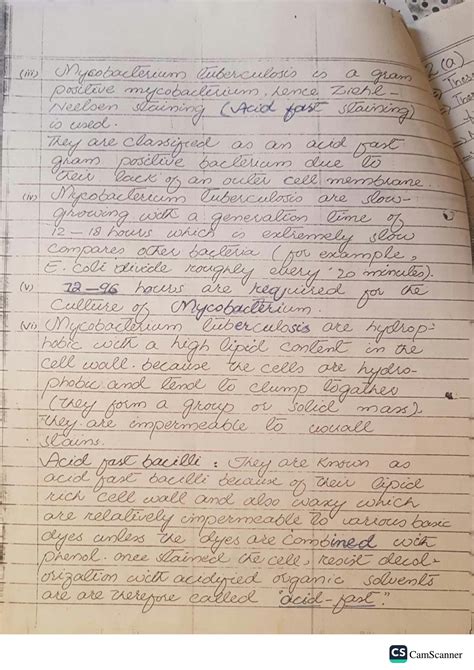 2 (a)
(iii) Mycobacterium tuberculosis is a gram
positive mycobacterium, hence Ziehl-
Neelsen staining (Acid fast staining)
is used.
They are classified as an acid fast
gram positive bacterium due to
their lack of an outer cell membrane.
(iv) Mycobacterium tuberculosis are slow-
growing with a generation time of
12-18 hours which is extremely slow
compares other bacteria (for example,
E. coli divide roughly every 20 minutes).
(v) 72-96 hours are required for the
culture of Mycobacterium.
(vi) Mycobacterium tuberculosis are hydrop-
hobic with a high lipid content in the
cell wall. because the cells are hydro-
phobic and tend to clump togather
(they form a group or solid mass)
They are impermeable to usuall
stains.
Acid fast bacilli : They are known as
acid fast bacilli because of their lipid
rich cell wall and also waxy which
are relatively impermeable to various basic
dyes unless the dyes are combined with
phenol. once stained the cell, resist decol-
orization with acidified organic solvents
are are therefore called "acid-fast".
CS CamScanner